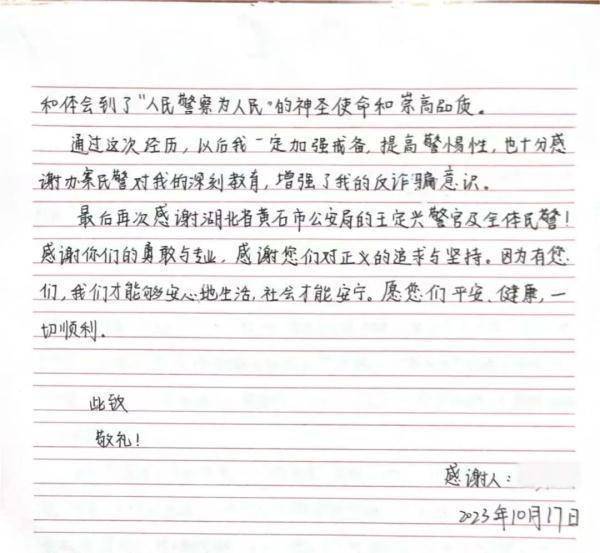 和体会到了"人民警察为人民"的神圣使命和崇高品质。
通过这次经历,以后我一定加强戒备,提高警惕性,也十分感
谢办案民警对我的深刻教育,增强了我的反诈骗意识。
最后再次感谢湖北省黄石市公安局的王定兴警官及全体民警!
感谢你们的勇敢与专业,感谢您们对正义的追求与坚持。因为有您
们,我们才能够安心地生活,社会才能安宁。愿您们平安、健康,一
切顺利。
此致
敬礼!
感谢人:
2023年10月17日